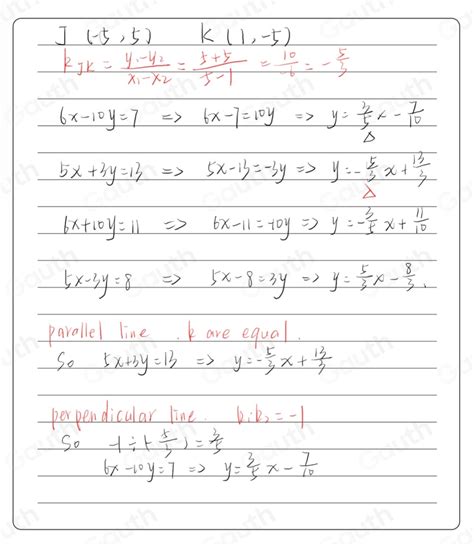 J (-5, 5) K (1, -5)
k_JK = (y₁-y₂)/(x₁-x₂) = (5+5)/(-5-1) = 10/-6 = -5/3
6x-10y=7 => 6x-7=10y => y=3/5 x - 7/10
5x+3y=13 => 5x-13=-3y => y=-5/3 x + 13/3
6x+10y=11 => 6x-11=-10y => y=-3/5 x + 11/10
5x-3y=8 => 5x-8=3y => y=5/3 x - 8/3.
parallel line. k are equal.
So 5x+3y=13 => y=-5/3 x + 13/3
perpendicular line. k₁k₂=-1
So -1÷(-5/3)=3/5
6x-10y=7 => y=3/5 x - 7/10